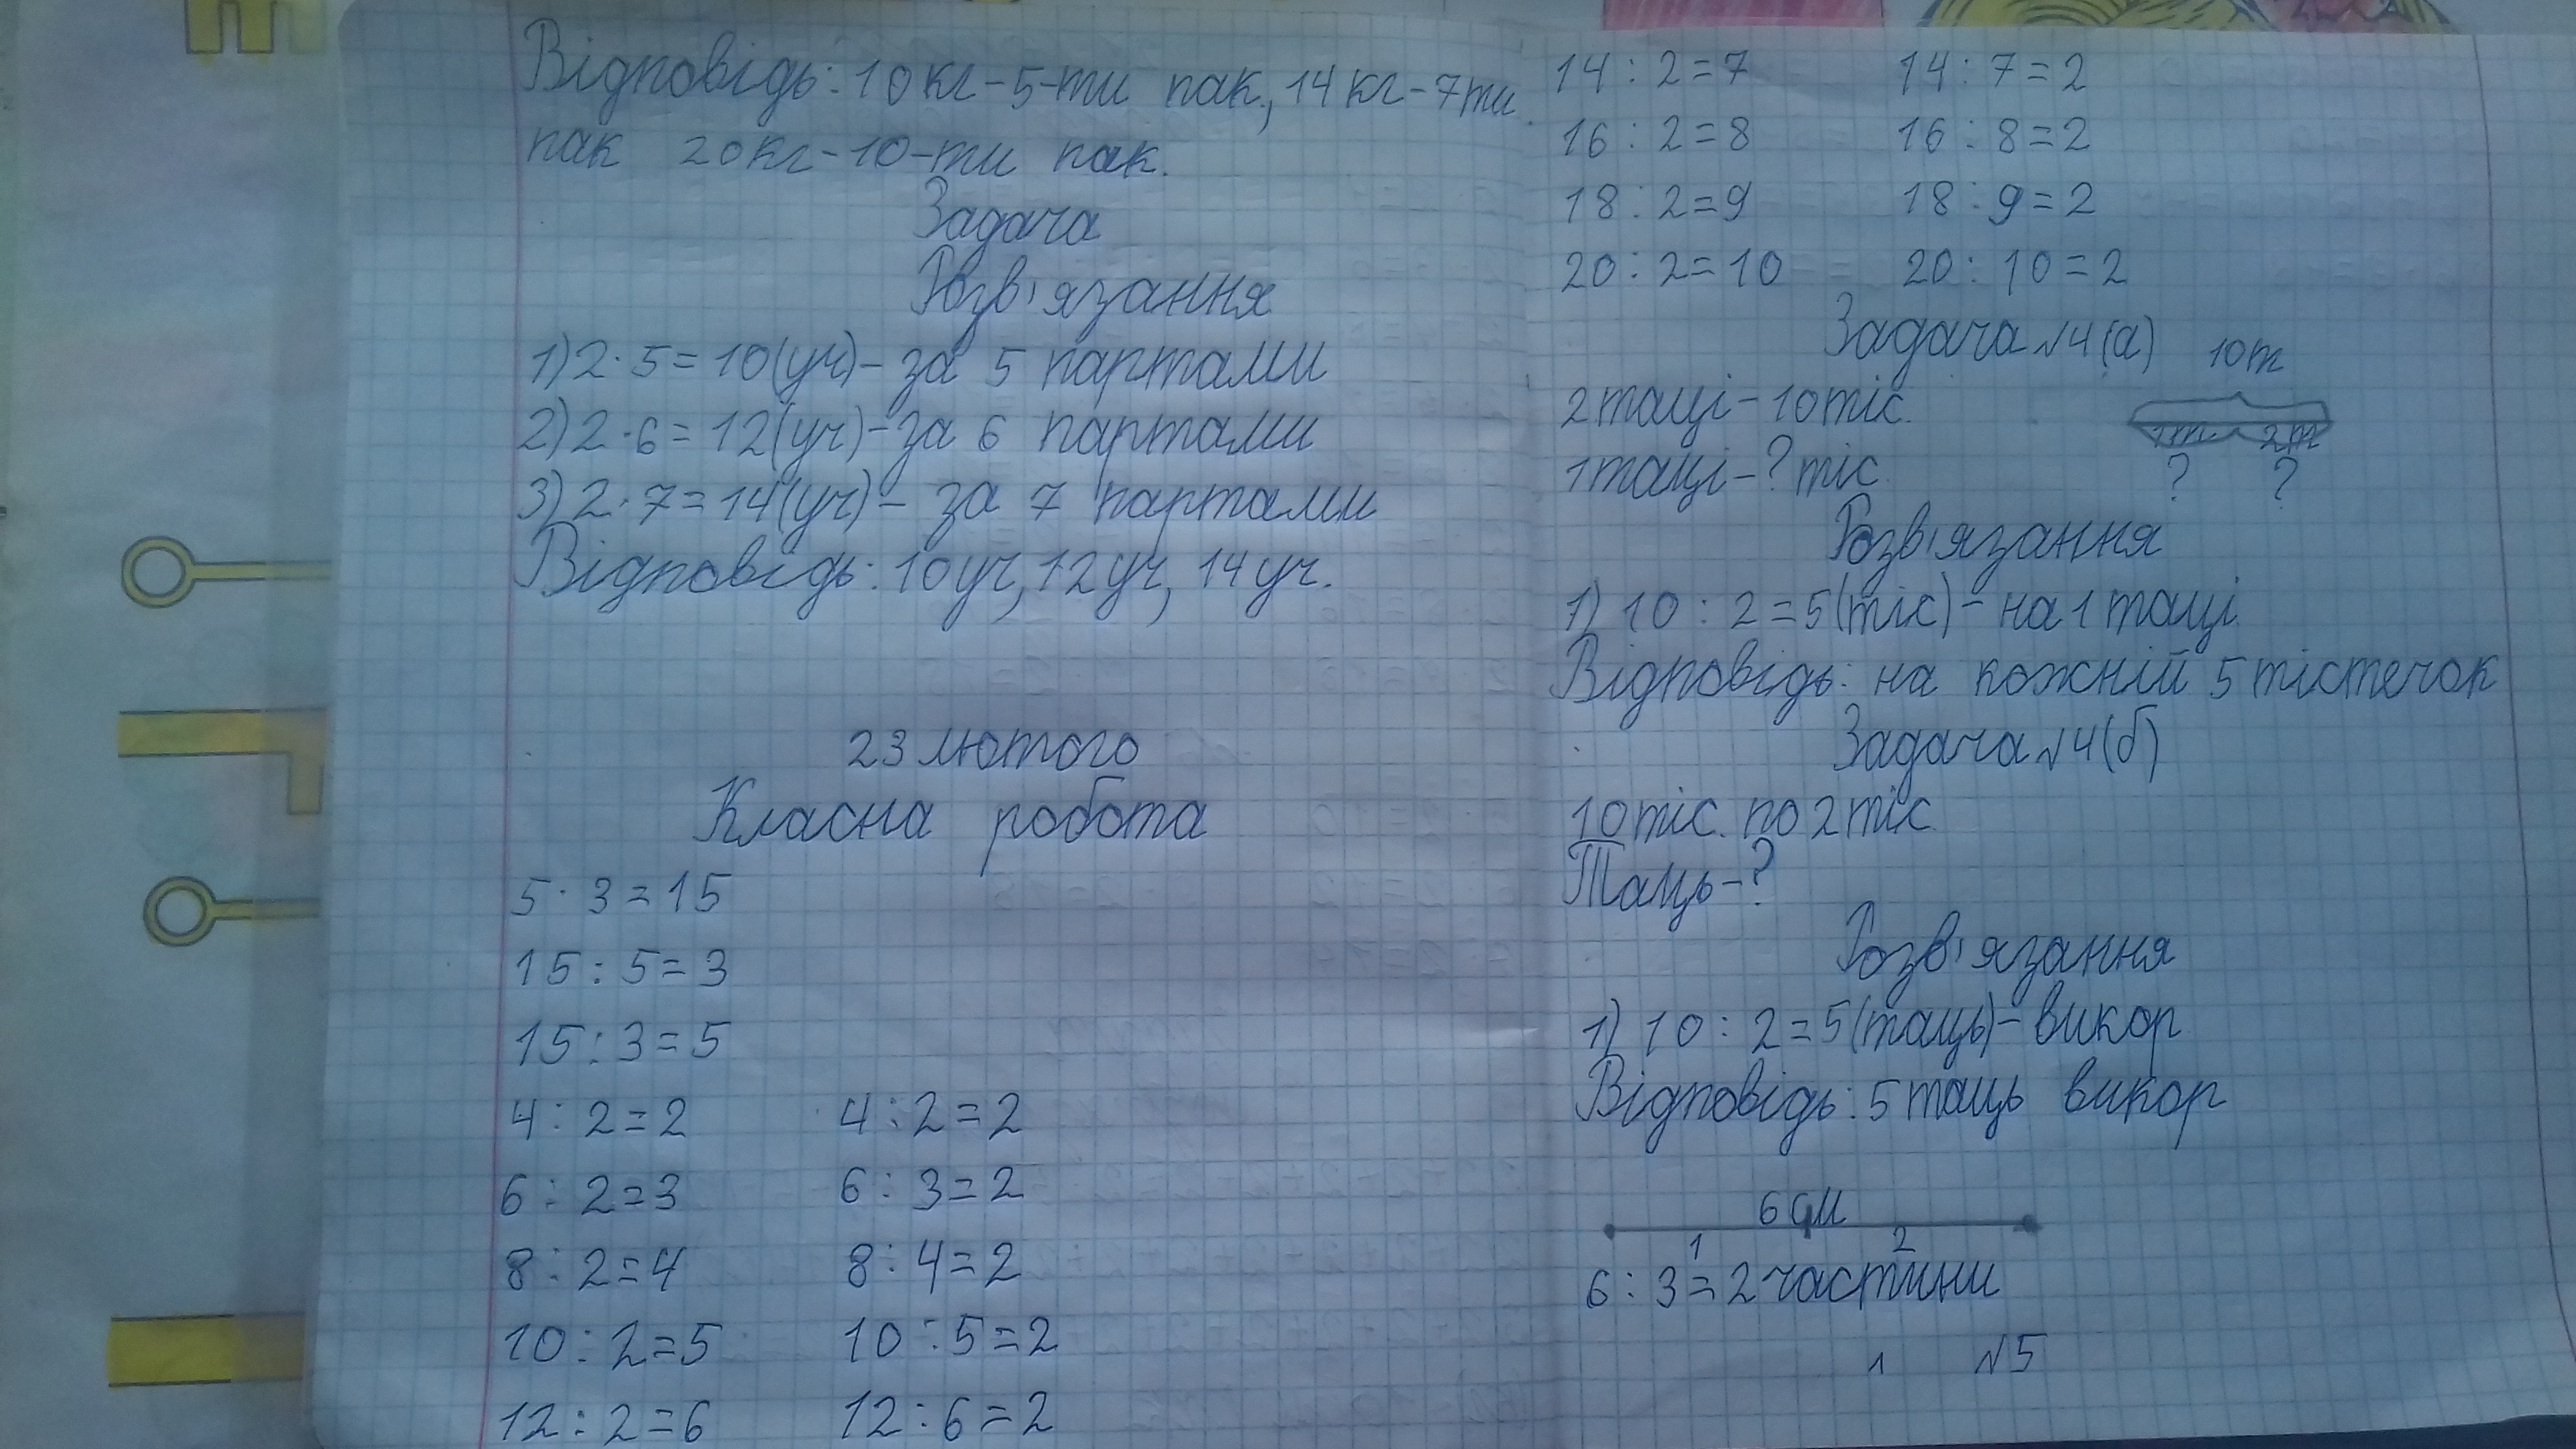 Відповідь: 10 кг - 5-ти пак., 14 кг - 7 ти
пак 20 кг - 10-ти пак.
Задача
Розв'язання
1) 2 · 5 = 10 (уч) - за 5 партами
2) 2 · 6 = 12 (уч) - за 6 партами
3) 2 · 7 = 14 (уч) - за 7 партами
Відповідь: 10 уч, 12 уч, 14 уч.
23 лютого
Класна робота
5 · 3 = 15
15 : 5 = 3
15 : 3 = 5
4 : 2 = 2 4 : 2 = 2
6 : 2 = 3 6 : 3 = 2
8 : 2 = 4 8 : 4 = 2
10 : 2 = 5 10 : 5 = 2
12 : 2 = 6 12 : 6 = 2
14 : 2 = 7 14 : 7 = 2
16 : 2 = 8 16 : 8 = 2
18 : 2 = 9 18 : 9 = 2
20 : 2 = 10 20 : 10 = 2
Задача №4 (а)
10 т
2 таці - 10 тіс.
1т 2т
1 таці - ? тіс
? ?
Розв'язання
1) 10 : 2 = 5 (тіс) - на 1 таці
Відповідь: на кожній 5 тістечок
Задача №4 (б)
10 тіс. по 2 тіс
Таць - ?
Розв'язання
1) 10 : 2 = 5 (таць) - викор
Відповідь: 5 таць викор
6 см
1 2
6 : 3 = 2 частини
1 №5